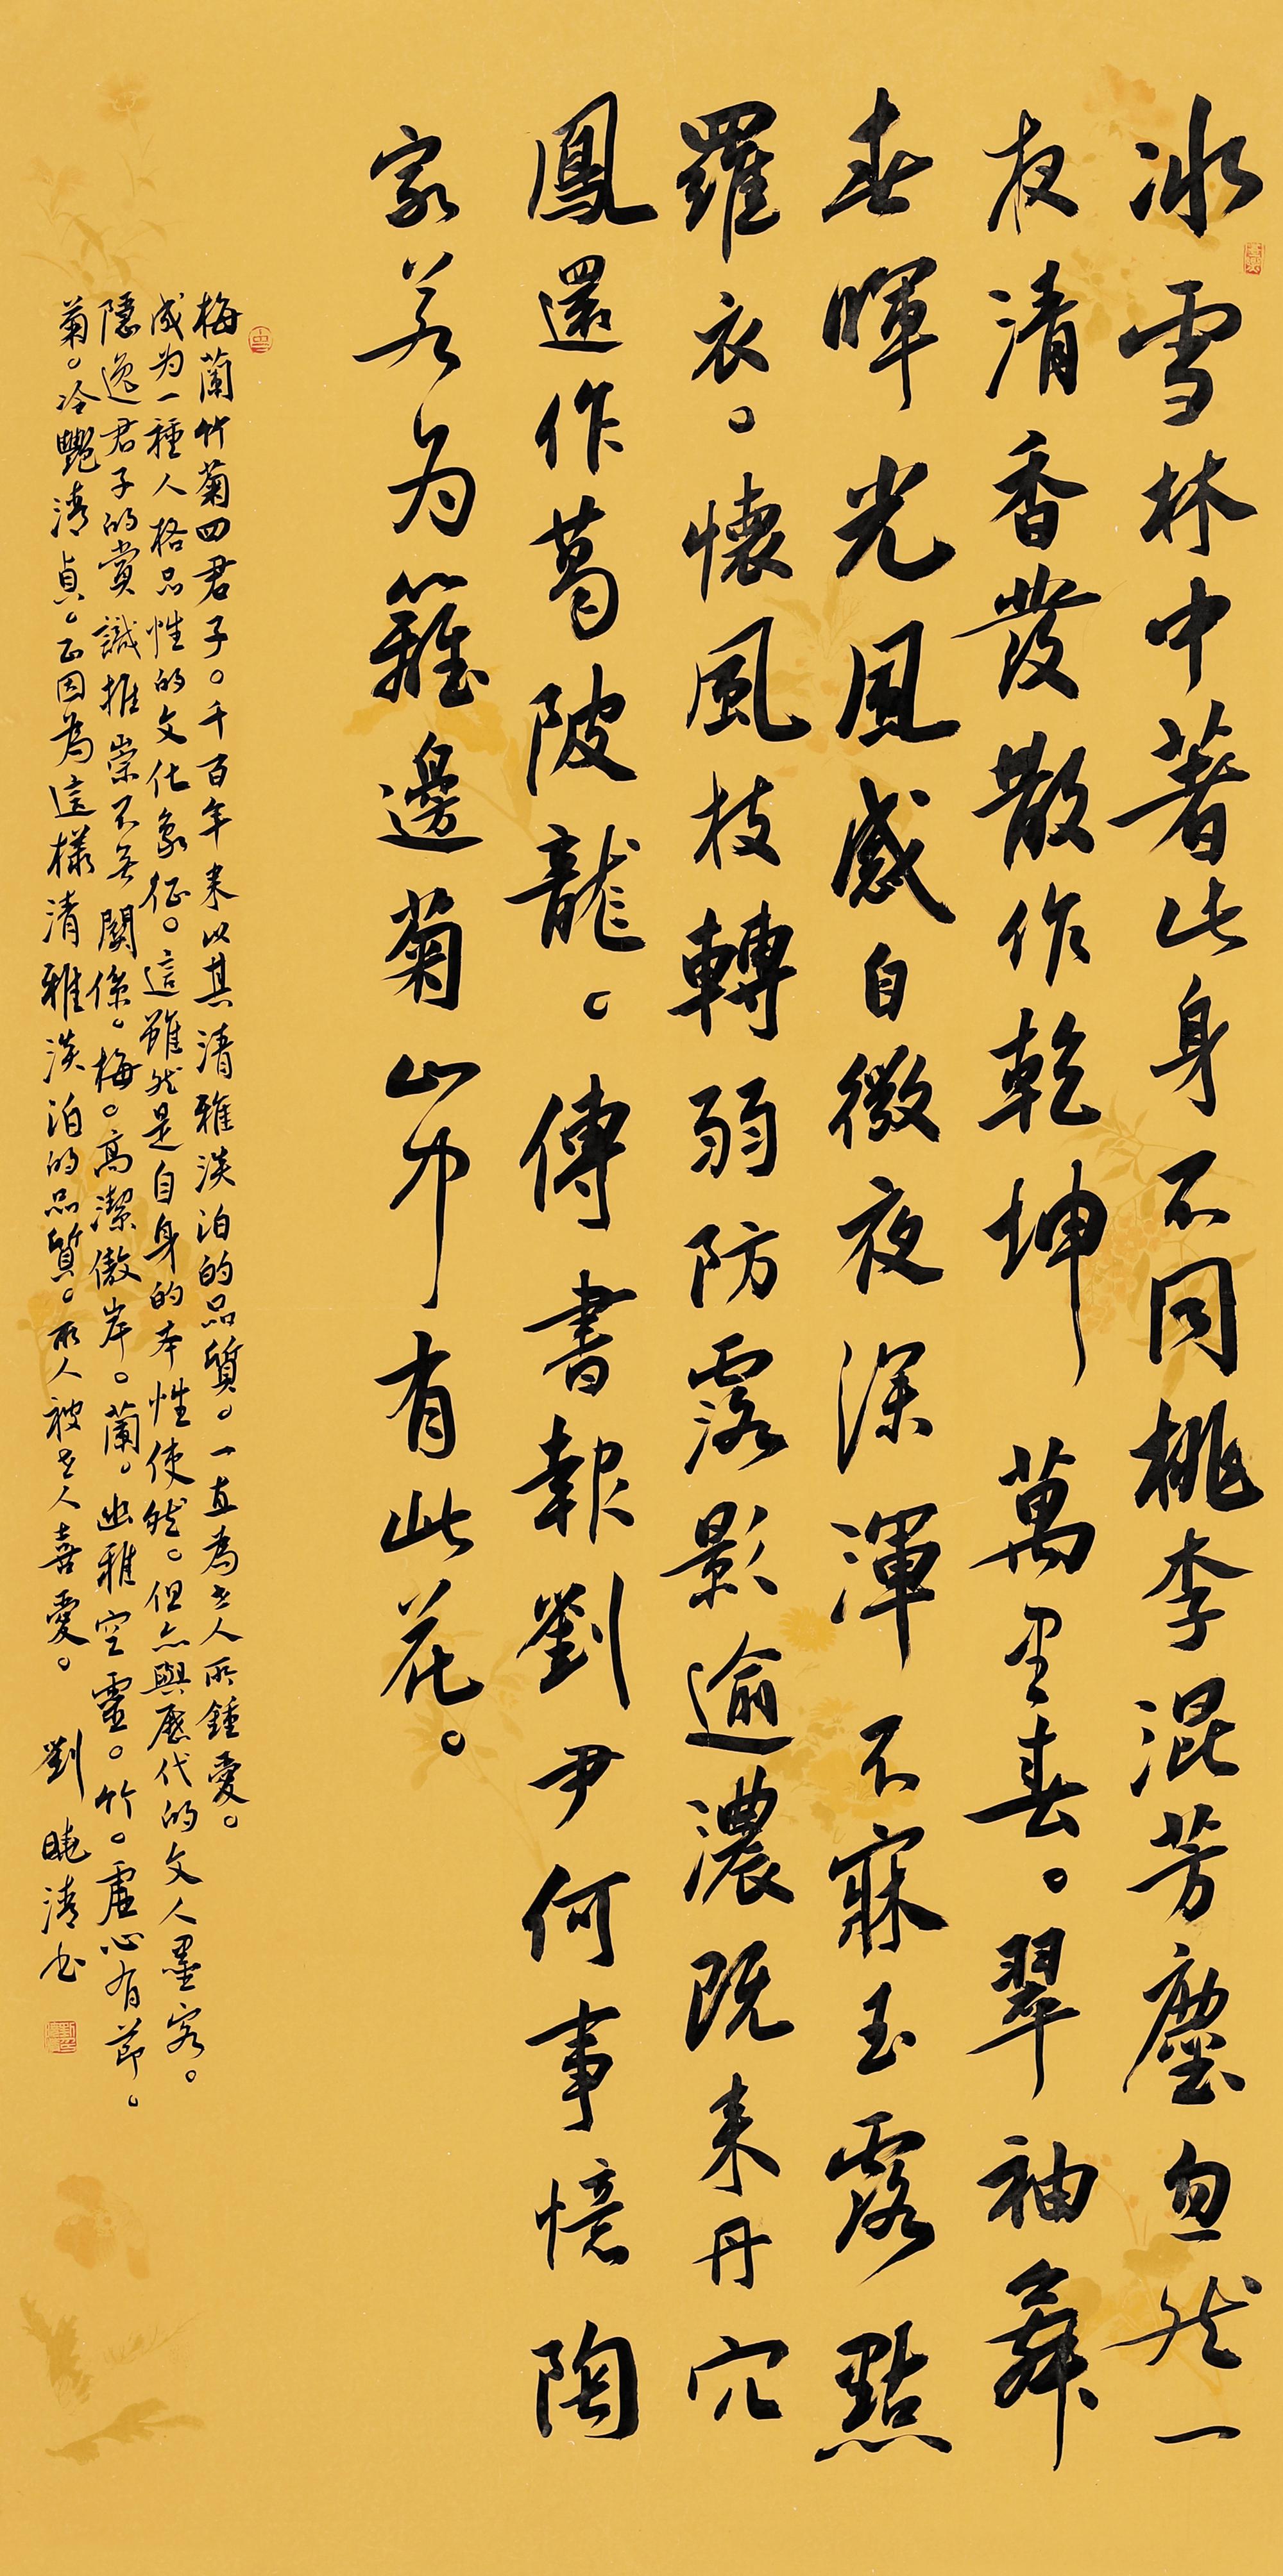 冰雪林中著此身不同桃李混芳塵忽然一
夜清香發散作乾坤萬里春。翠袖舞
春暉光風感自微夜深渾不寐玉露點
羅衣。懷風枝轉弱防露影逾濃既来丹穴
鳳還作葛陂龍。傳書報劉尹何事憶陶
家若为籬邊菊山中有此花。
梅蘭竹菊四君子。千百年来以其清雅淡泊的品質。一直為世人所鍾愛。
成为一種人格品性的文化象征。這雖然是自身的本性使然。但亦與歷代的文人墨客。
隱逸君子的賞識推崇不无關係。梅。高潔傲岸。蘭。幽雅空靈。竹。虛心有節。
菊。冷艷清貞。正因為這樣清雅淡泊的品質。所人被世人喜愛。 劉曉清书